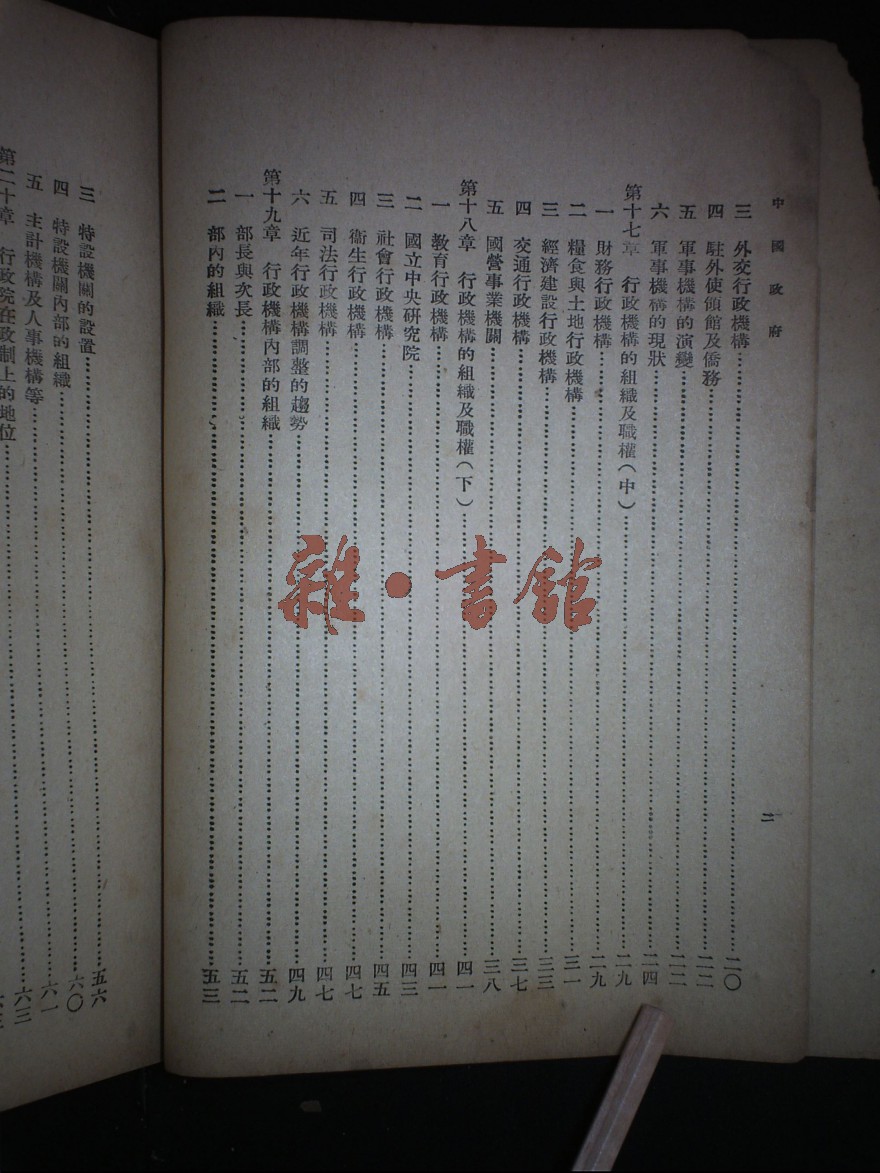 中國政府
二
三 外交行政機構……二〇
四 駐外使領館及僑務……二二
五 軍事機構的演變……二二
六 軍事機構的現狀……二四
第十七章 行政機構的組織及職權(中)……二九
一 財務行政機構……二九
二 糧食與土地行政機構……三一
三 經濟建設行政機構……三三
四 交通行政機構……三七
五 國營事業機關……三八
第十八章 行政機構的組織及職權(下)……四一
一 教育行政機構……四一
二 國立中央硏究院……四三
三 社會行政機構……四五
四 衞生行政機構……四七
五 司法行政機構……四七
六 近年行政機構調整的趨勢……四九
第十九章 行政機構內部的組織……五二
一 部長與次長……五二
二 部內的組織……五三
三 特設機關的設置……五六
四 特設機關內部的組織……六〇
五 主計機構及人事機構等……六一
第二十章 行政院在政制上的地位……六三
雜·書館